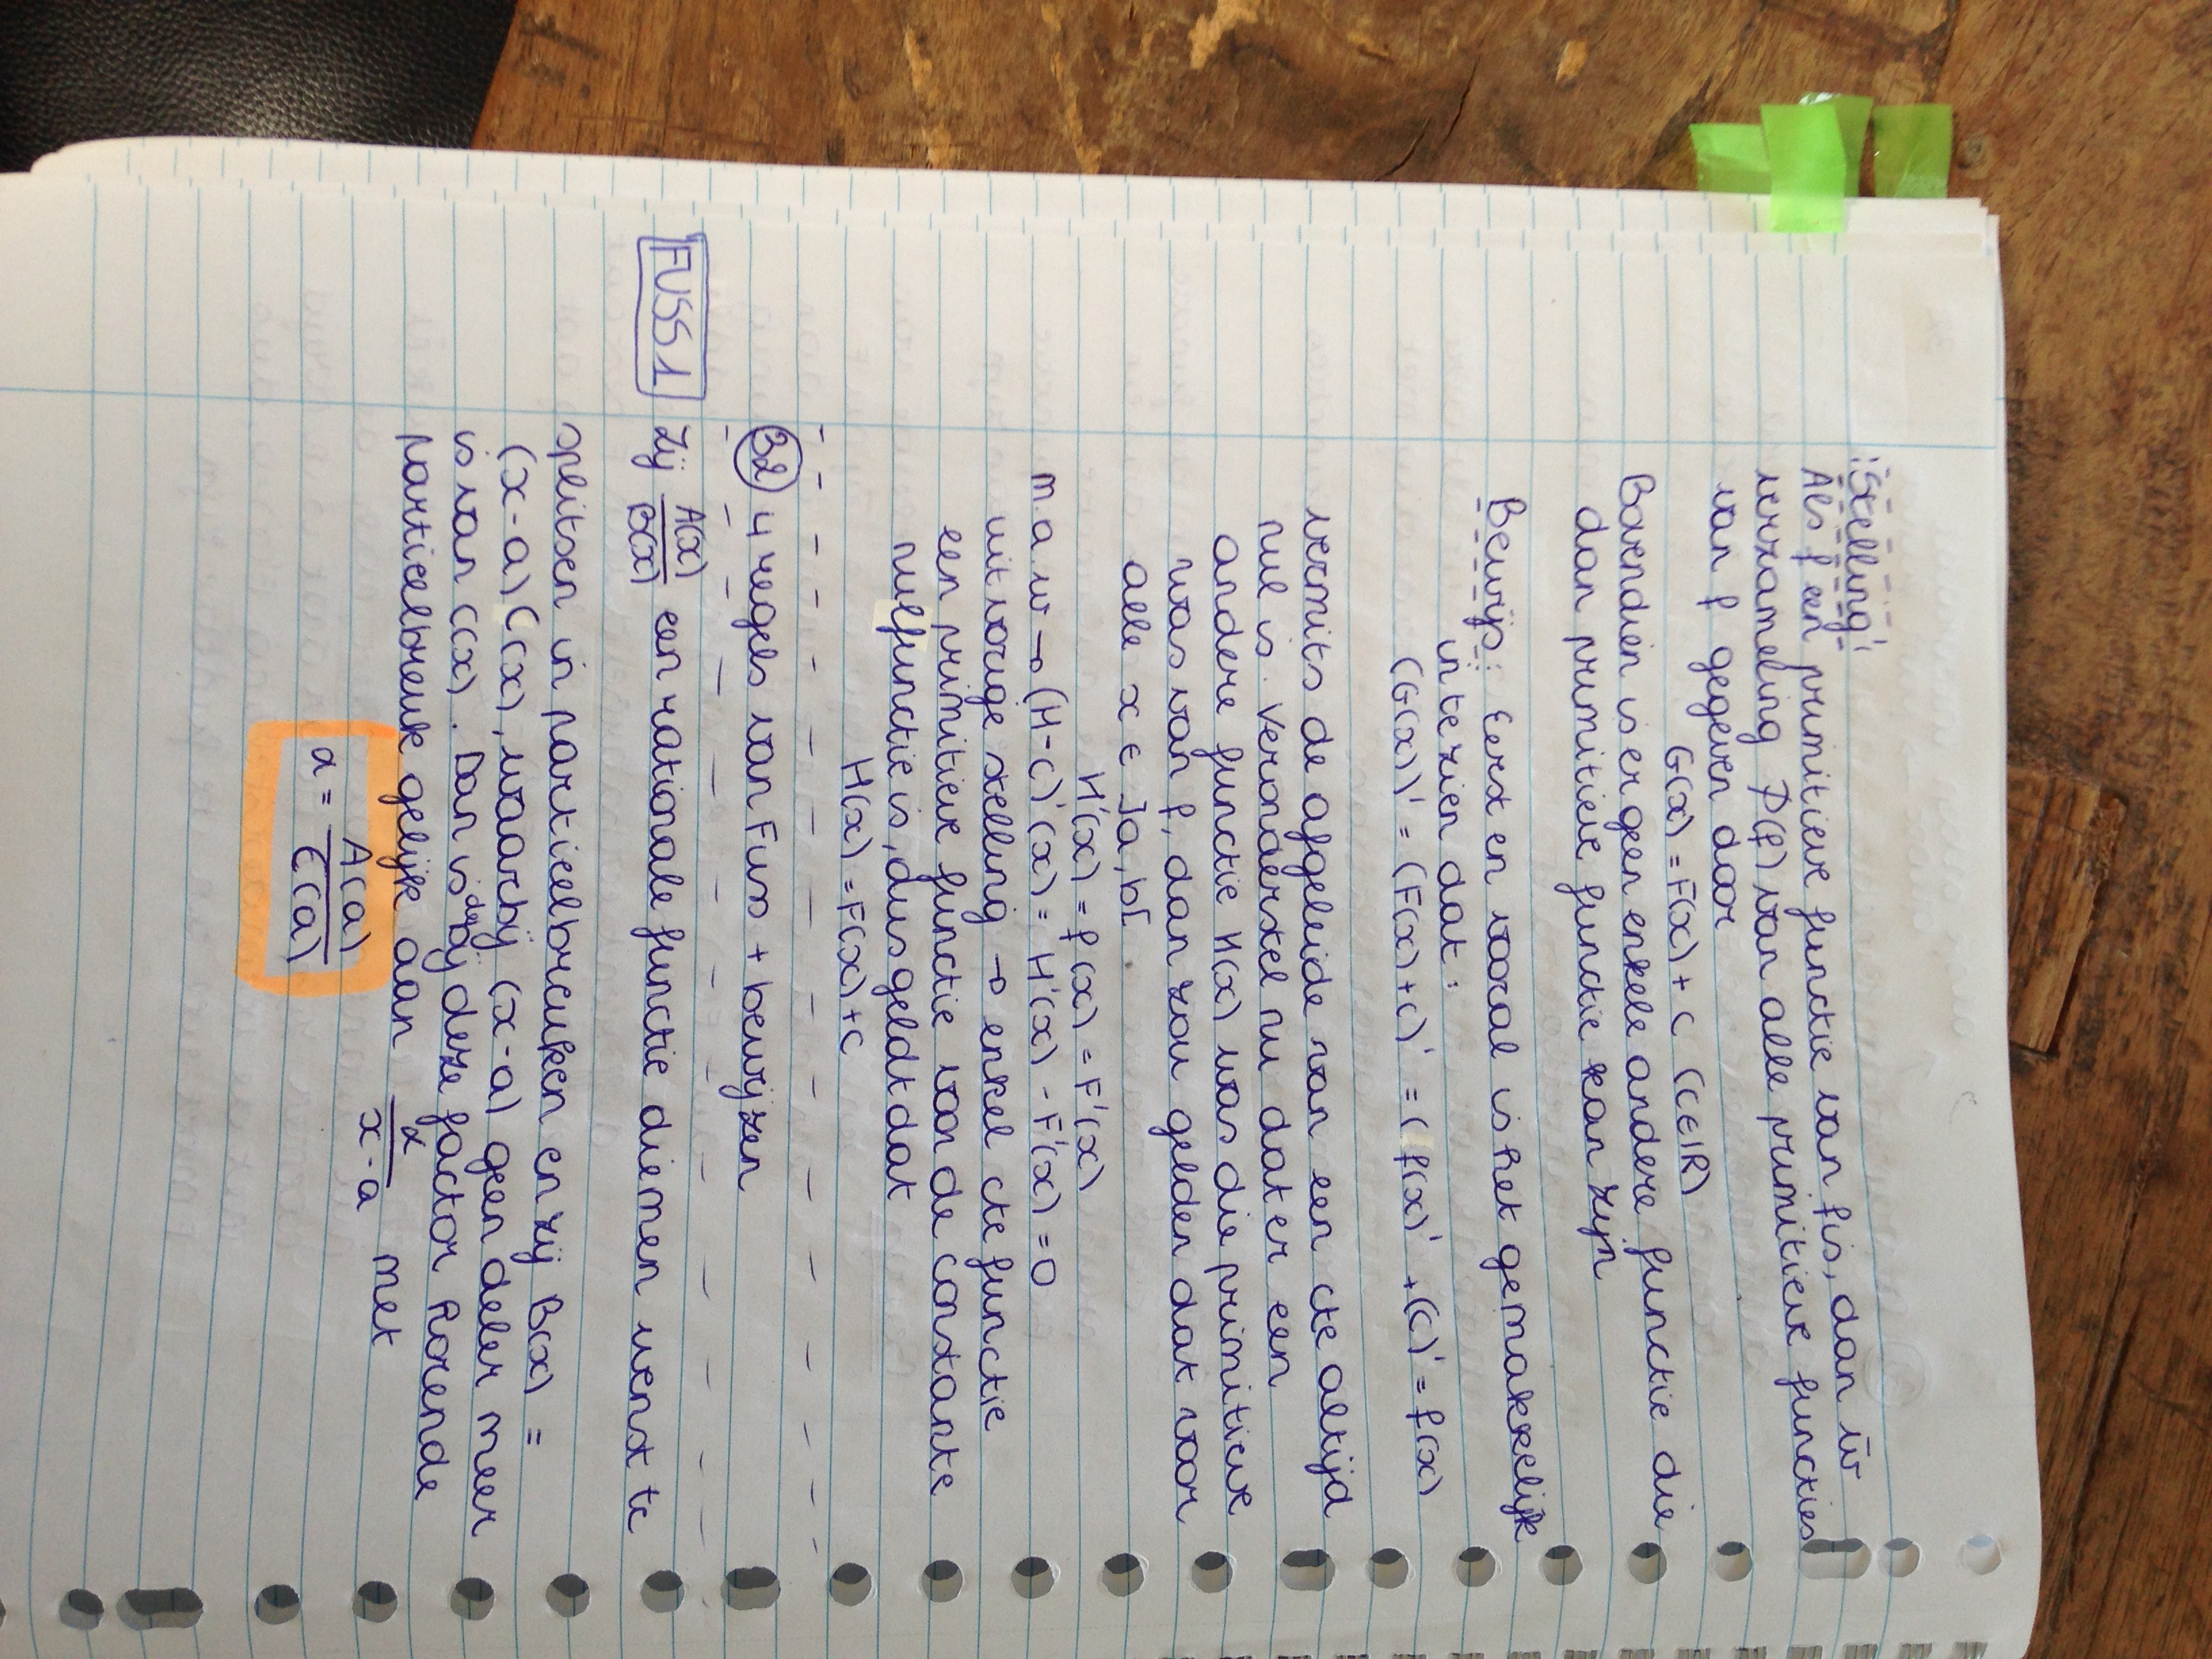 Stelling
Als f een primitieve functie van f is, dan w
verzameling P(f) van alle primitieve functies
van f gegeven door
G(x) = F(x) + C (C∈ℝ)
Bovendien is er geen enkele andere functie die
dan primitieve functie kan zijn
Bewijs: Eerst en vooral is het gemakkelijk
in te zien dat:
(G(x))' = (F(x)+C)' = ( f(x)' + (C)' = f(x)
vermits de afgeleide van een cte altijd
nul is. Veronderstel nu dat er een
andere functie H(x) was die primitieve
was van f, dan zou gelden dat voor
alle x ∈ ]a,b[
H'(x) = f(x) = F'(x)
m.a.w → (H-C)'(x) = H'(x) - F'(x) = 0
uit vorige stelling → enkel cte functie
een primitieve functie voor de constante
nulfunctie is, dus geldt dat
H(x) = F(x) + C
32 4 regels van Fuss + bewijzen
FUSS 1 Zij A(x)/B(x) een rationale functie die men wenst te
splitsen in partieelbreuken en zij B(x) =
(x-a) C(x), waarbij (x-a) geen deler meer
is van C(x). Dan is de bij deze factor horende
partieelbreuk gelijk aan α/(x-a) met
α = A(a)/C(a)